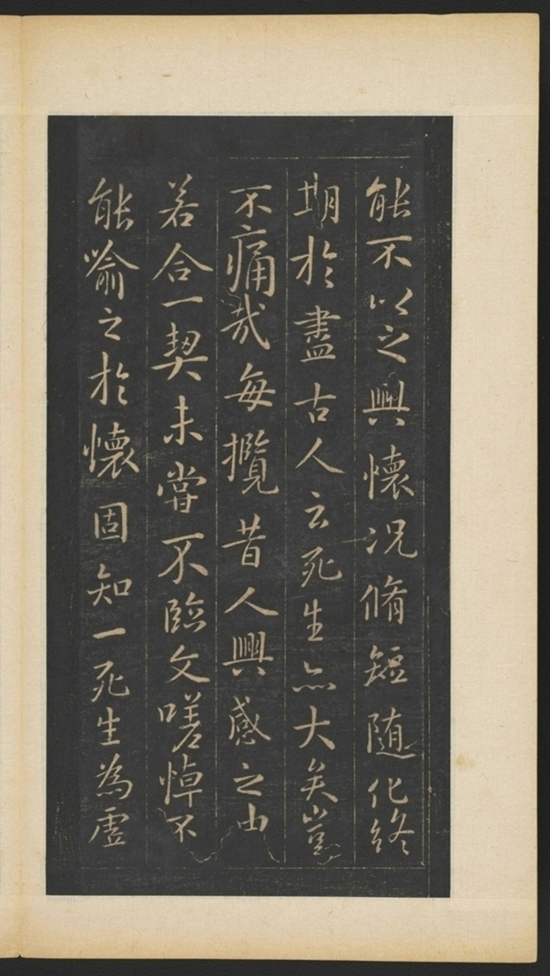 能不以之興懷况脩短隨化終
期於盡古人云死生亦大矣豈
不痛哉每攬昔人興感之由
若合一契未嘗不臨文嗟悼不
能喻之於懷固知一死生為虛